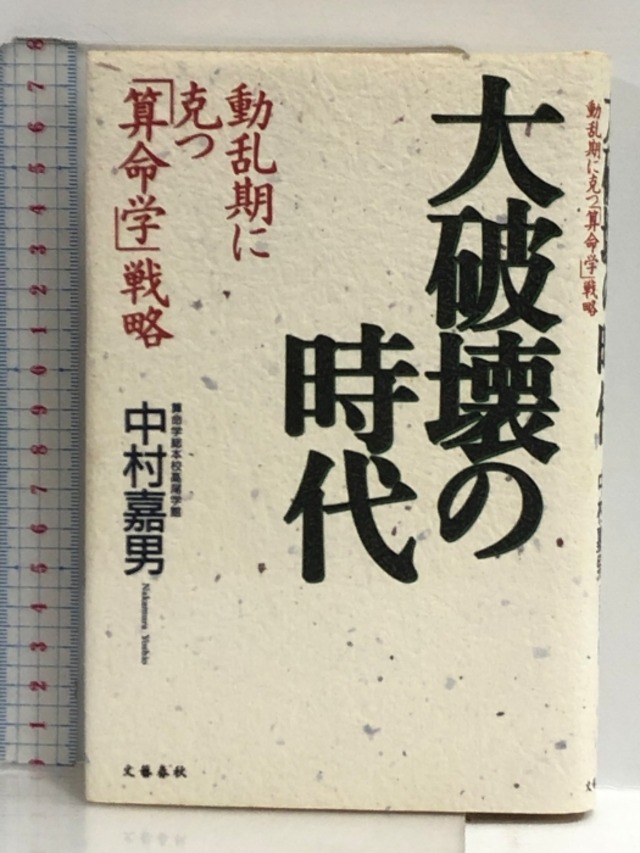 大破壊の
時代
動乱期に
克つ
「算命学」戦略
算命学総本校高尾学館
中村嘉男
Nakamura Yoshio
文藝春秋
動乱期に克つ「算命学」戦略
8
7
6
5
4
3
2
1
0
9
8
7
6
5
4
3
2
1